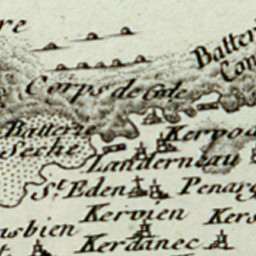 re
Batteri
Con
Corps de Garde
Batterie
Seche
Kervod
Landerneau
St. Eden
Penar
Kervien
Kers
sbien
Kerdanec